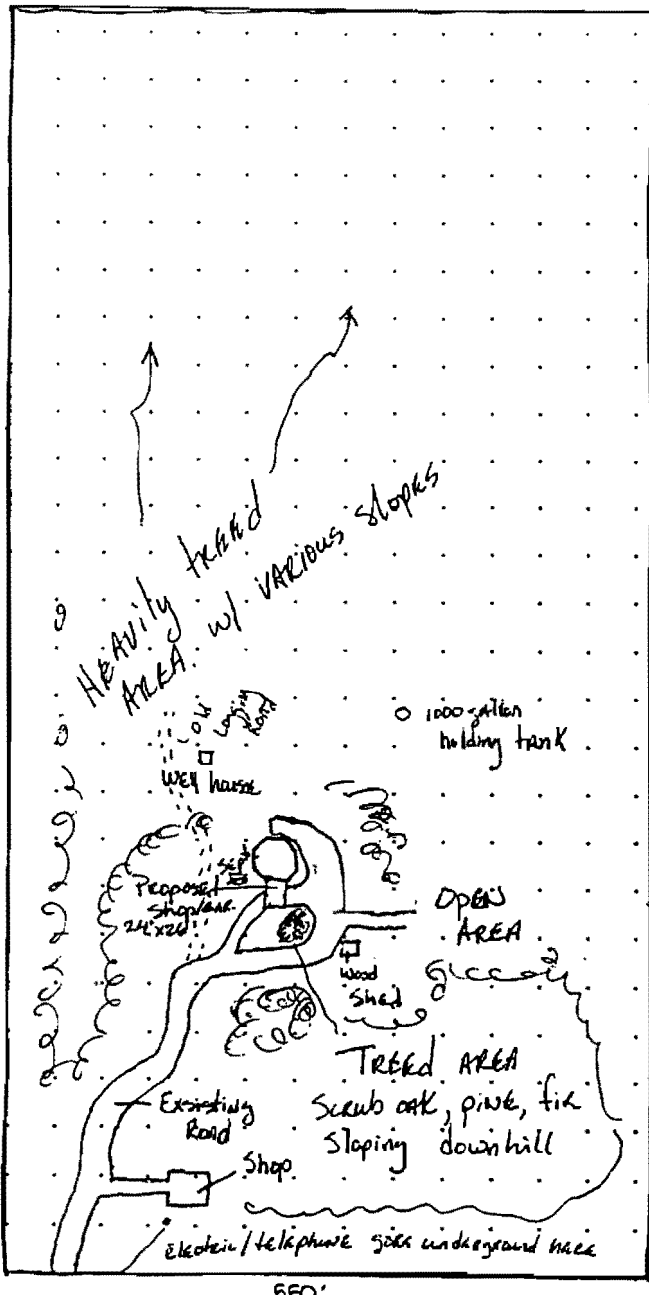 HEAVily treed
AREA. w/ VARIOUS slopes
Old
Logging
Road
1000 gallon
holding tank
Well house
Sept
Proposed
Shop/GAR.
24'x26'
OPEN
AREA
Wood
Shed
TREED AREA
Scrub oak, pine, fir
Sloping downhill
Exsisting
Road
Shop
Electric/telephone goes underground here
550'